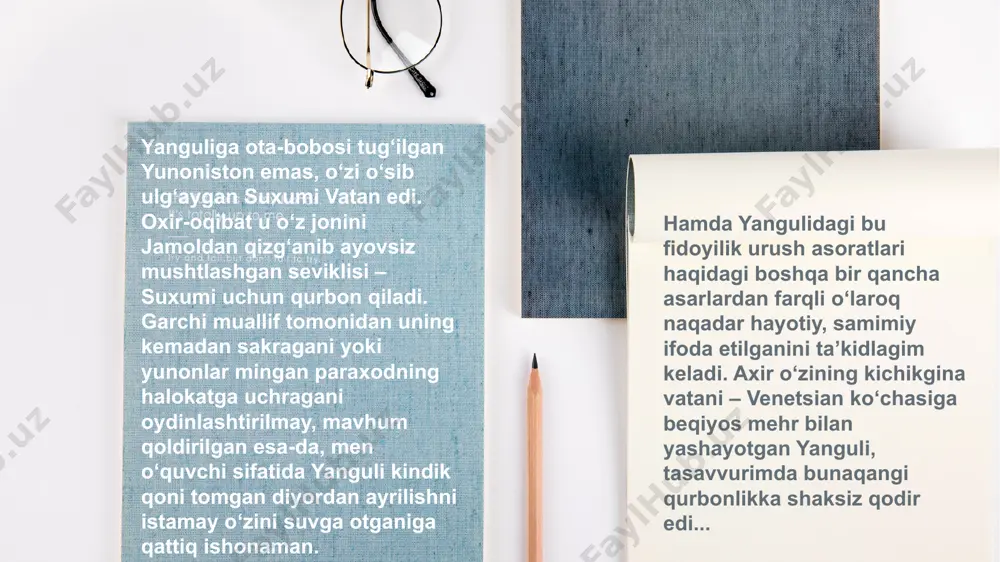 Yanguliga ota-bobosi tug‘ilgan
Yunoniston emas, o‘zi o‘sib
ulg‘aygan Suxumi Vatan edi.
Oxir-oqibat u o‘z jonini
Jamoldan qizg‘anib ayovsiz
mushtlashgan seviklisi –
Suxumi uchun qurbon qiladi.
Garchi muallif tomonidan uning
kemadan sakragani yoki
yunonlar mingan paraxodning
halokatga uchragani
oydinlashtirilmay, mavhum
qoldirilgan esa-da, men
o‘quvchi sifatida Yanguli kindik
qoni tomgan diyordan ayrilishni
istamay o‘zini suvga otganiga
qattiq ishonaman.
Hamda Yangulidagi bu
fidoyilik urush asoratlari
haqidagi boshqa bir qancha
asarlardan farqli o‘laroq
naqadar hayotiy, samimiy
ifoda etilganini ta’kidlagim
keladi. Axir o‘zining kichikgina
vatani – Venetsian ko‘chasiga
beqiyos mehr bilan
yashayotgan Yanguli,
tasavvurimda bunaqangi
qurbonlikka shaksiz qodir
edi...
FaylHub.uz
FaylHub.uz
FaylHub.uz